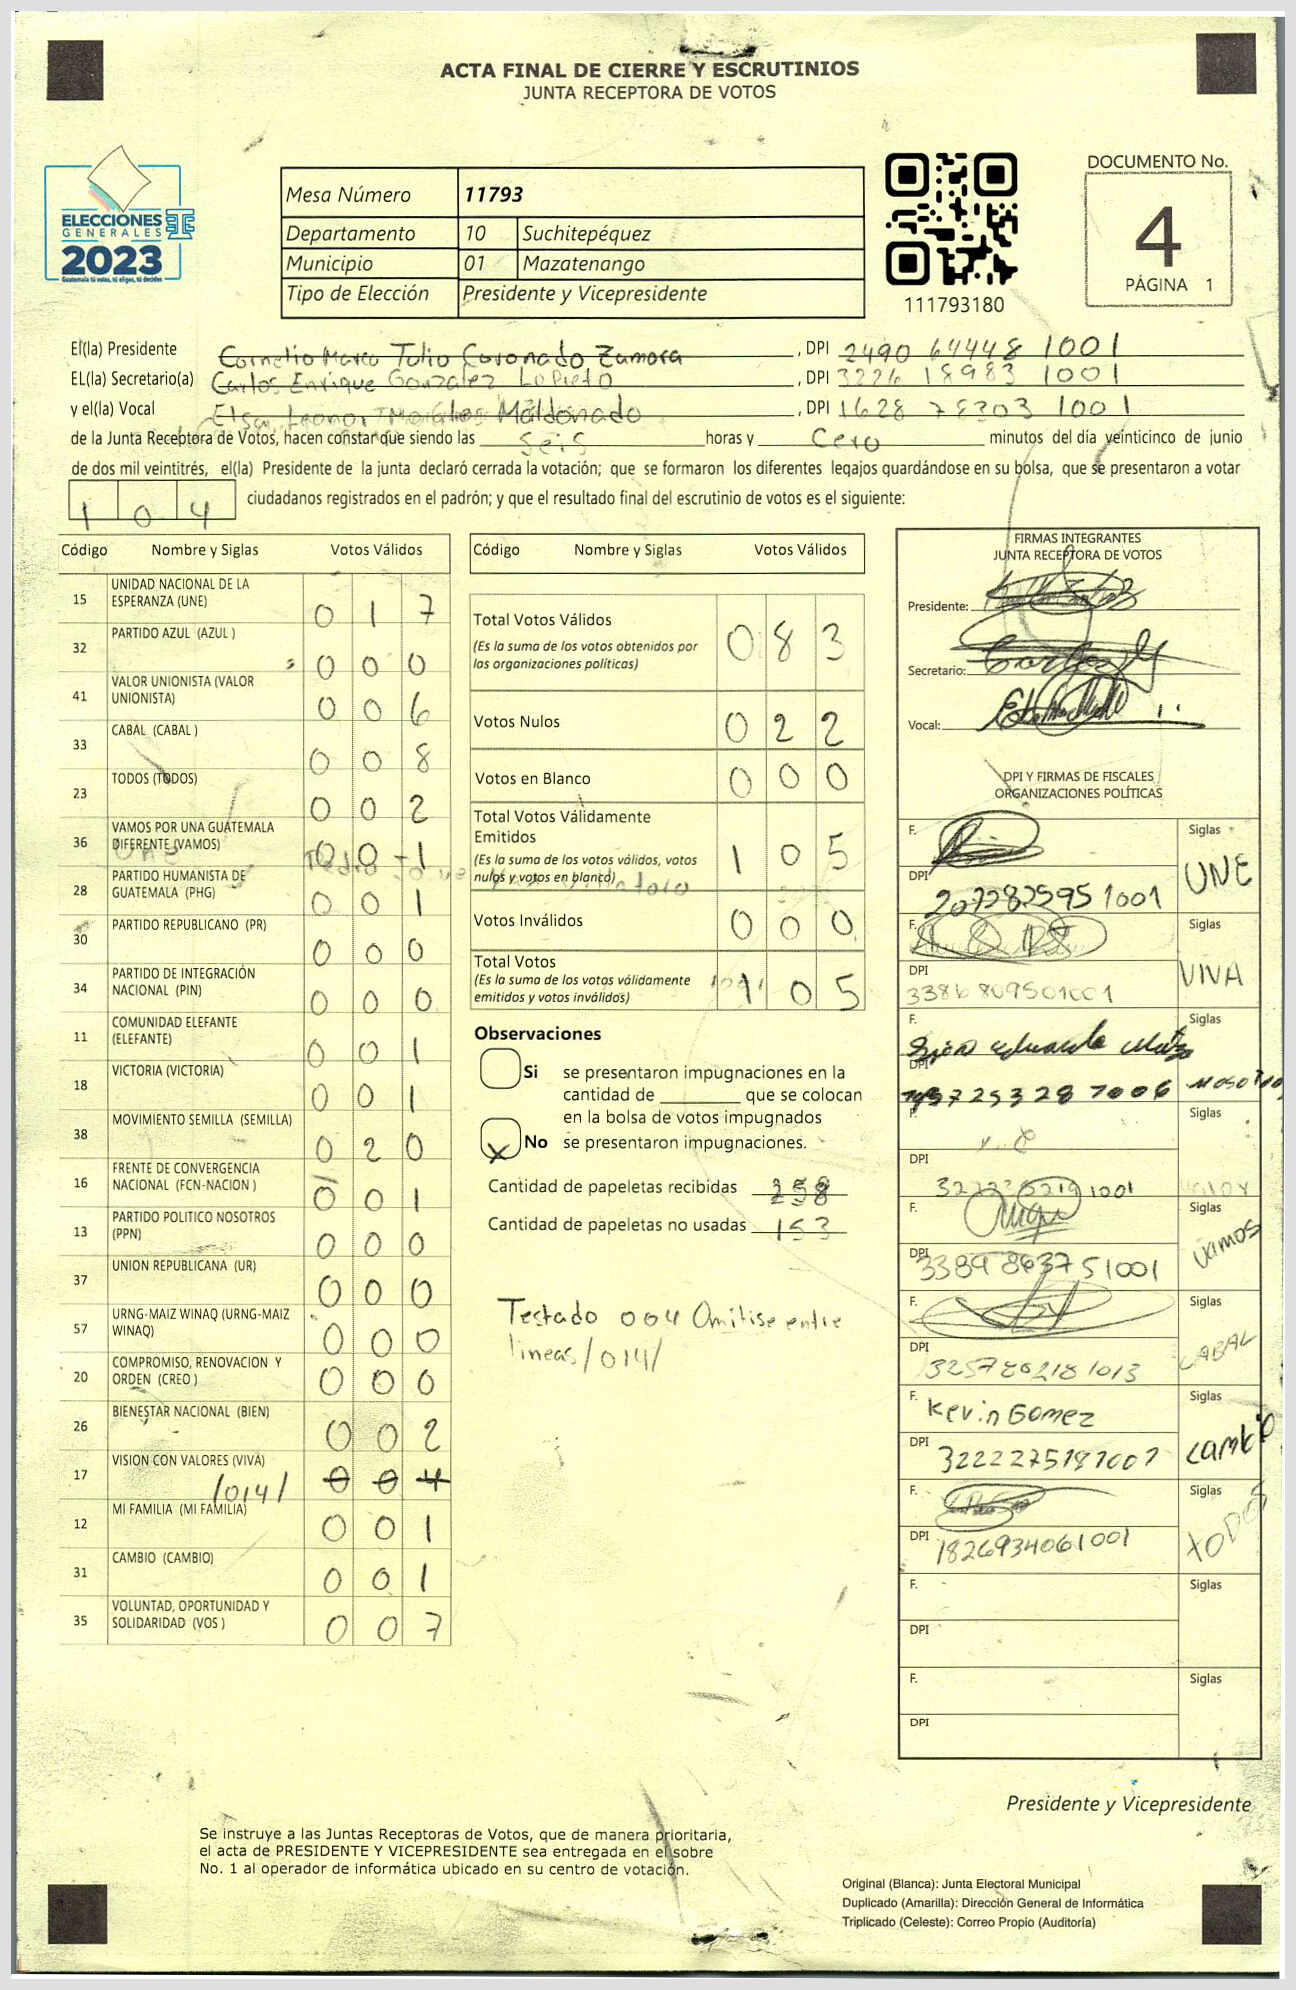 ACTA FINAL DE CIERRE Y ESCRUTINIOS
JUNTA RECEPTORA DE VOTOS
ELECCIONES
GENERALES
2023
Guatemala tú votas, tú eliges, tú decides
Mesa Número 11793
Departamento 10 Suchitepéquez
Municipio 01 Mazatenango
Tipo de Elección Presidente y Vicepresidente
111793180
DOCUMENTO No.
4
PÁGINA 1
El(la) Presidente Cornelio Marco Tulio Coronado Zamora, DPI 2490 64448 1001
EL(la) Secretario(a) Carlos Enrique Gonzalez LoPieto, DPI 3226 18983 1001
y el(la) Vocal Elsa Leonor Morales Maldonado, DPI 1628 78303 1001
de la Junta Receptora de Votos, hacen constar que siendo las seis horas y Cero minutos del día veinticinco de junio
de dos mil veintitrés, el(la) Presidente de la junta declaró cerrada la votación; que se formaron los diferentes legajos guardándose en su bolsa, que se presentaron a votar
104 ciudadanos registrados en el padrón; y que el resultado final del escrutinio de votos es el siguiente:
Código Nombre y Siglas Votos Válidos
15 UNIDAD NACIONAL DE LA ESPERANZA (UNE) 017
32 PARTIDO AZUL (AZUL ) 000
41 VALOR UNIONISTA (VALOR UNIONISTA) 006
33 CABAL (CABAL ) 008
23 TODOS (TODOS) 002
36 VAMOS POR UNA GUATEMALA DIFERENTE (VAMOS) 001
28 PARTIDO HUMANISTA DE GUATEMALA (PHG) 001
30 PARTIDO REPUBLICANO (PR) 000
34 PARTIDO DE INTEGRACIÓN NACIONAL (PIN) 000
11 COMUNIDAD ELEFANTE (ELEFANTE) 001
18 VICTORIA (VICTORIA) 001
38 MOVIMIENTO SEMILLA (SEMILLA) 020
16 FRENTE DE CONVERGENCIA NACIONAL (FCN-NACION ) 001
13 PARTIDO POLITICO NOSOTROS (PPN) 000
37 UNION REPUBLICANA (UR) 000
57 URNG-MAIZ WINAQ (URNG-MAIZ WINAQ) 000
20 COMPROMISO, RENOVACION Y ORDEN (CREO ) 000
26 BIENESTAR NACIONAL (BIEN) 002
17 VISION CON VALORES (VIVA) /014/ 004
12 MI FAMILIA (MI FAMILIA) 001
31 CAMBIO (CAMBIO) 001
35 VOLUNTAD, OPORTUNIDAD Y SOLIDARIDAD (VOS ) 007
Código Nombre y Siglas Votos Válidos
Total Votos Válidos 083
(Es la suma de los votos obtenidos por
las organizaciones políticas)
Votos Nulos 022
Votos en Blanco 000
Total Votos Válidamente
Emitidos 105
(Es la suma de los votos válidos, votos
nulos y votos en blanco)
Votos Inválidos 000
Total Votos 105
(Es la suma de los votos válidamente
emitidos y votos inválidos)
Observaciones
Si se presentaron impugnaciones en la
cantidad de ________ que se colocan
en la bolsa de votos impugnados
X No se presentaron impugnaciones.
Cantidad de papeletas recibidas 258
Cantidad de papeletas no usadas 153
Testado 004 Omitise entre
lineas /014/
FIRMAS INTEGRANTES
JUNTA RECEPTORA DE VOTOS
Presidente:
Secretario:
Vocal:
DPI Y FIRMAS DE FISCALES
ORGANIZACIONES POLÍTICAS
F. Siglas UNE
DPI 2072825951001
F. Siglas VIVA
DPI 3386809501001
F. Siglas
DPI
F. Siglas
DPI
F. Siglas Vamos
DPI 3389863751001
F. Siglas CABAL
DPI 3257802181013
F. Kevin Gomez Siglas Cambio
DPI 3222275191001
F. Siglas TODOS
DPI 1826934061001
F. Siglas
DPI
F. Siglas
DPI
Presidente y Vicepresidente
Se instruye a las Juntas Receptoras de Votos, que de manera prioritaria,
el acta de PRESIDENTE Y VICEPRESIDENTE sea entregada en el sobre
No. 1 al operador de informática ubicado en su centro de votación.
Original (Blanca): Junta Electoral Municipal
Duplicado (Amarilla): Dirección General de Informática
Triplicado (Celeste): Correo Propio (Auditoría)